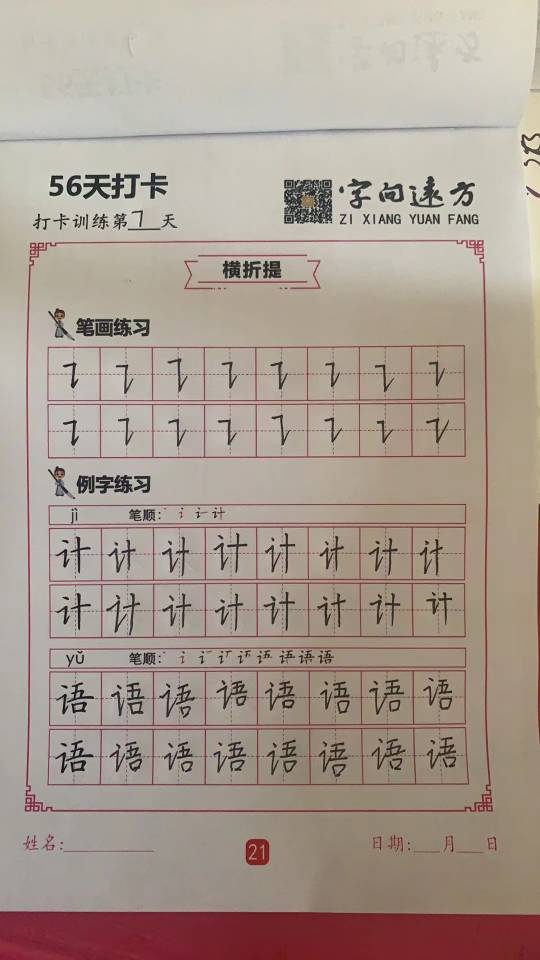 56天打卡
字向远方
打卡训练第7天
ZI XIANG YUAN FANG
横折提
笔画练习
例字练习
jì 笔顺: 计
计 计 计 计 计 计 计 计
计 计 计 计 计 计 计 计
yǔ 笔顺: 语
语 语 语 语 语 语 语 语
语 语 语 语 语 语 语 语
姓名: 21 日期: 月 日